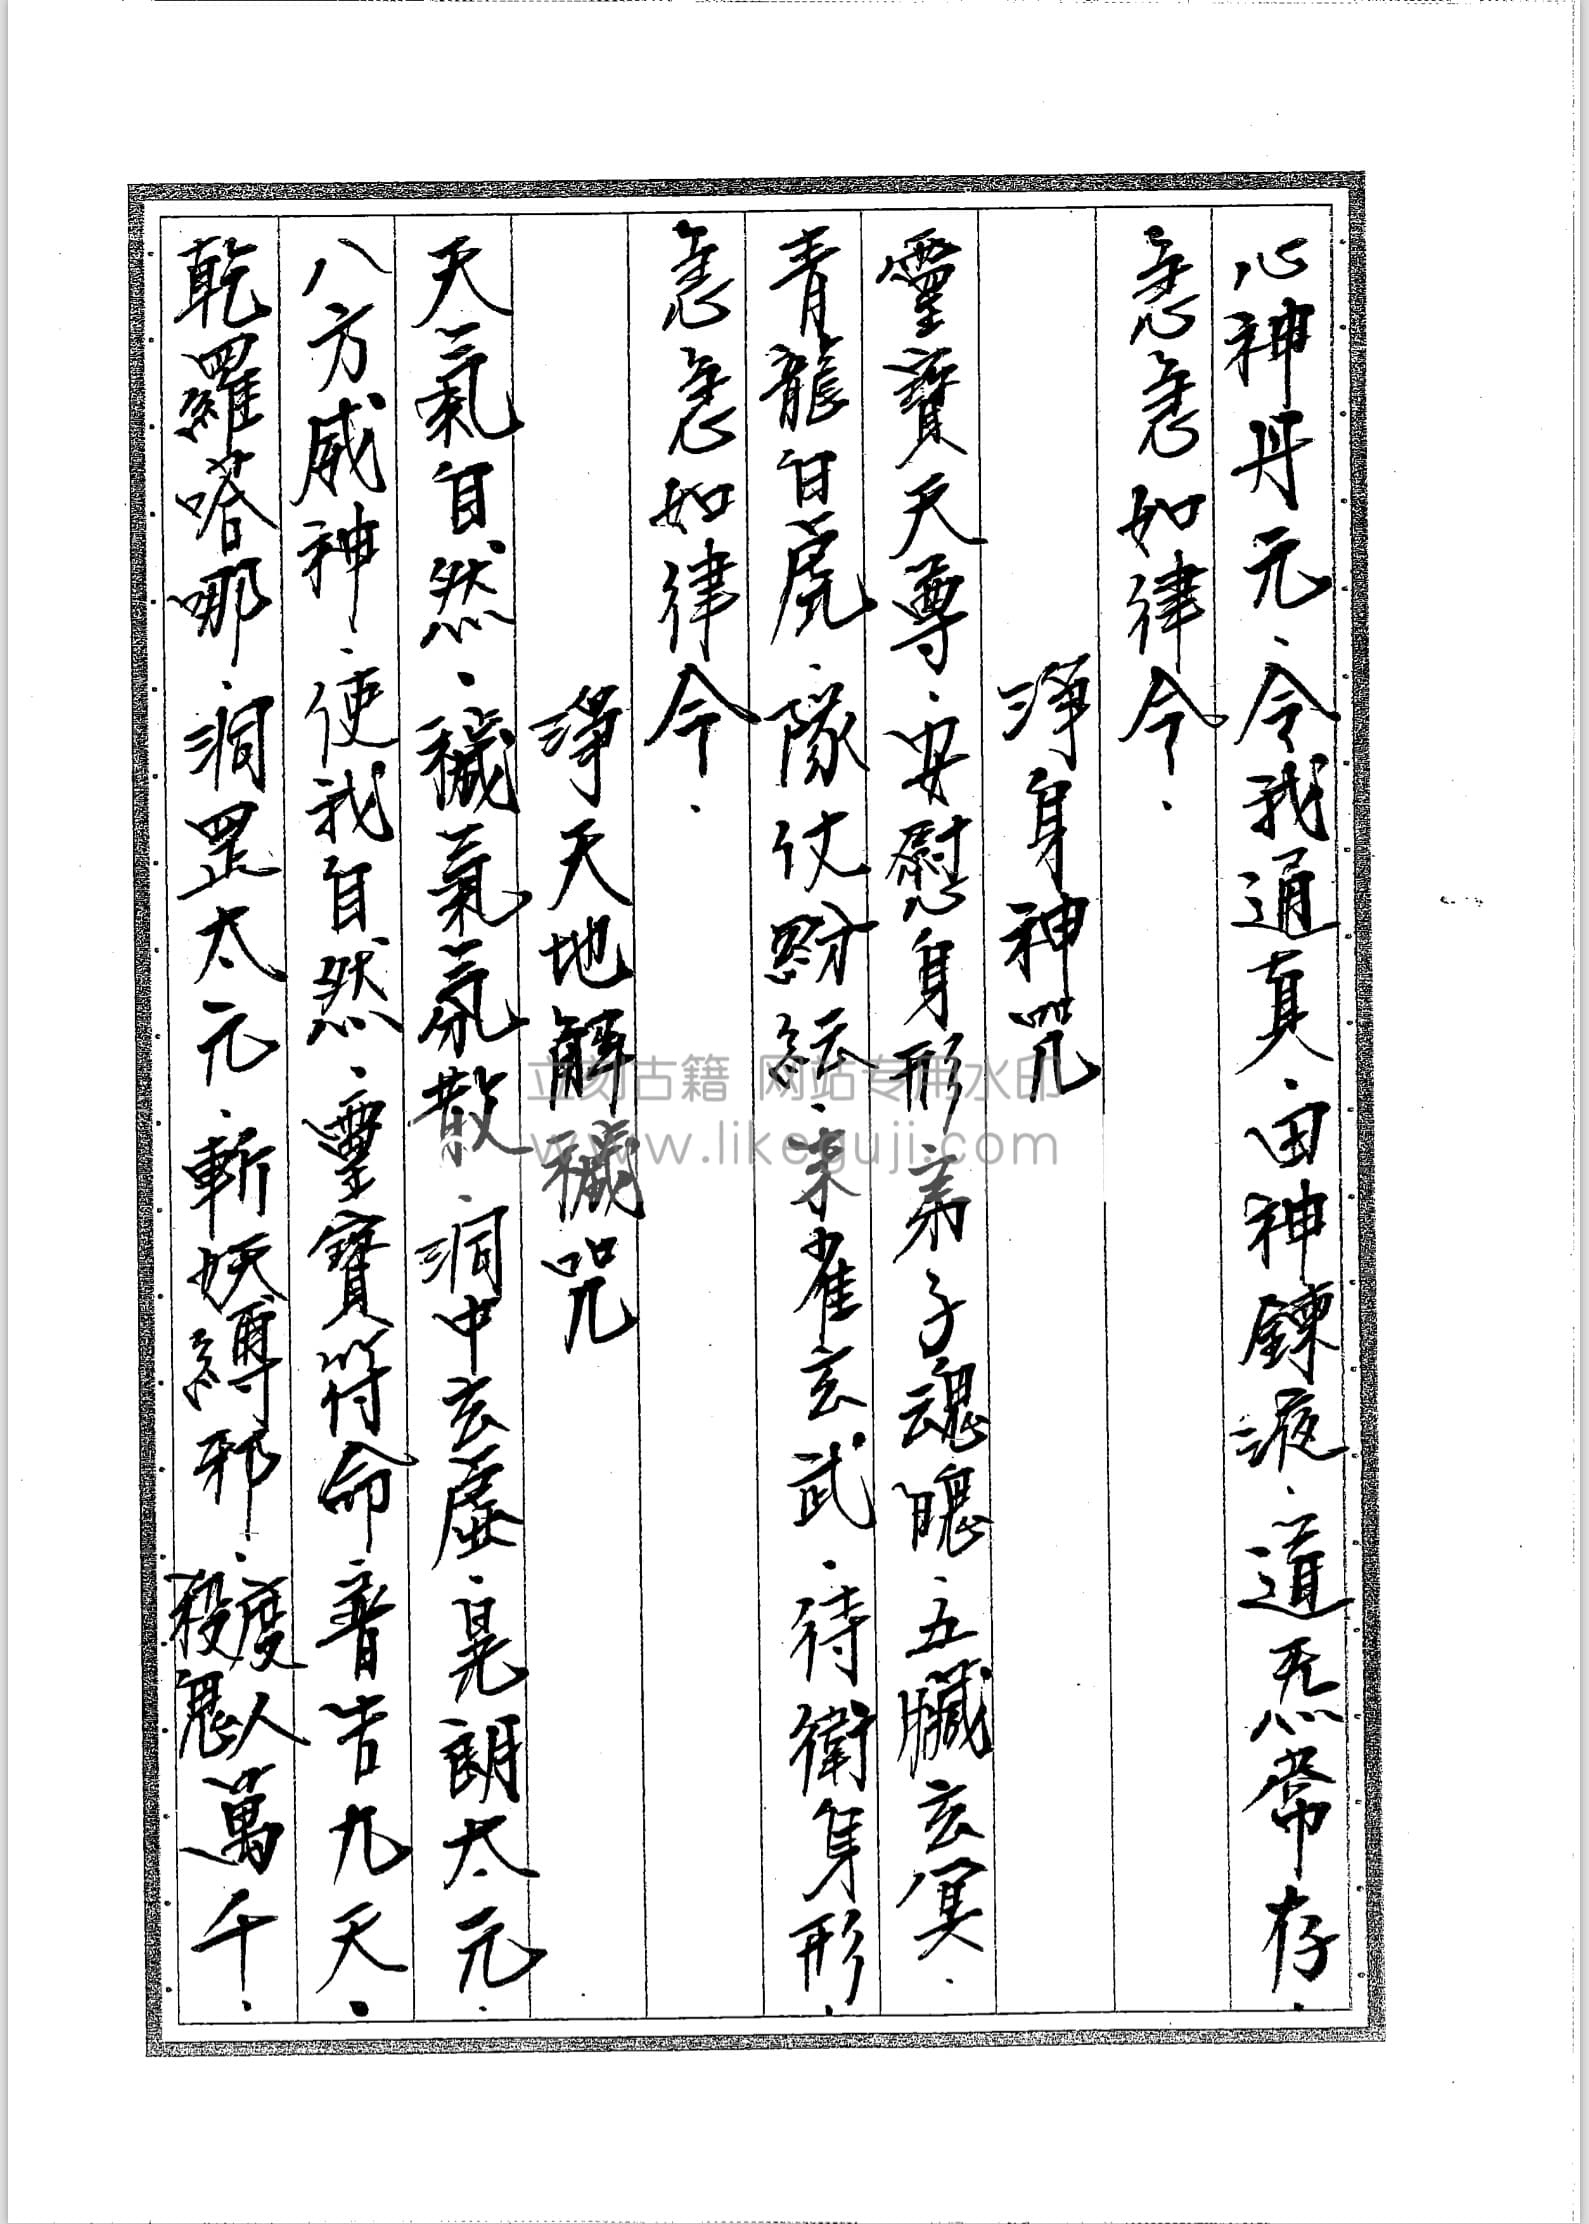 心神丹元．令我通真．田神鍊液．道炁常存．
急急如律令．
淨身神咒
靈寶天尊．安慰身形弟子魂魄．五臟玄冥．
青龍白虎．隊仗紛紜．朱雀玄武．待衛身形．
急急如律令．
淨天地解穢咒
天氣自然．穢氣氛散．洞中玄虛．晃朗太元．
八方威神．使我自然．靈寶符命．普告九天．
乾羅嗒哪．洞罡太元．斬妖縛邪．度人殺鬼萬千．
立刻古籍 网站专用水印
www.likeguji.com